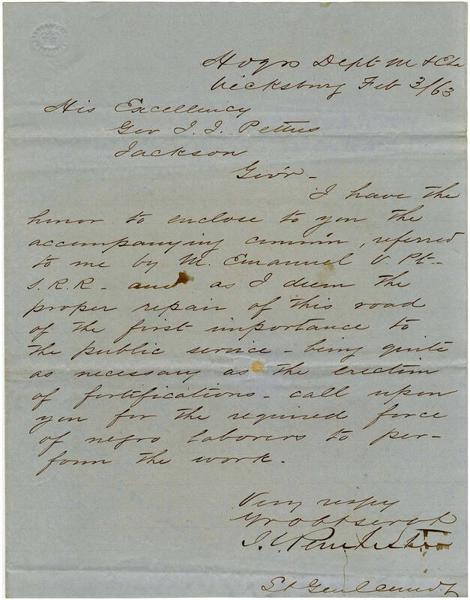 Hdqrs Dept M & Ea
Vicksburg Feb 3/63
His Excellency
Gov J. J. Pettus
Jackson
Gov'r -
I have the
honor to enclose to you the
accompanying commn, referred
to me by M. Emanuel V. Pt-
S. R. R. - and as I deem the
proper repair of this road
of the first importance to
the public service - being quite
as necessary as the erection
of fortifications - call upon
you for the required force
of negro laborers to per-
form the work.
Very respy
Yr obt servt
J. C. Pemberton
Lt Genl comdg